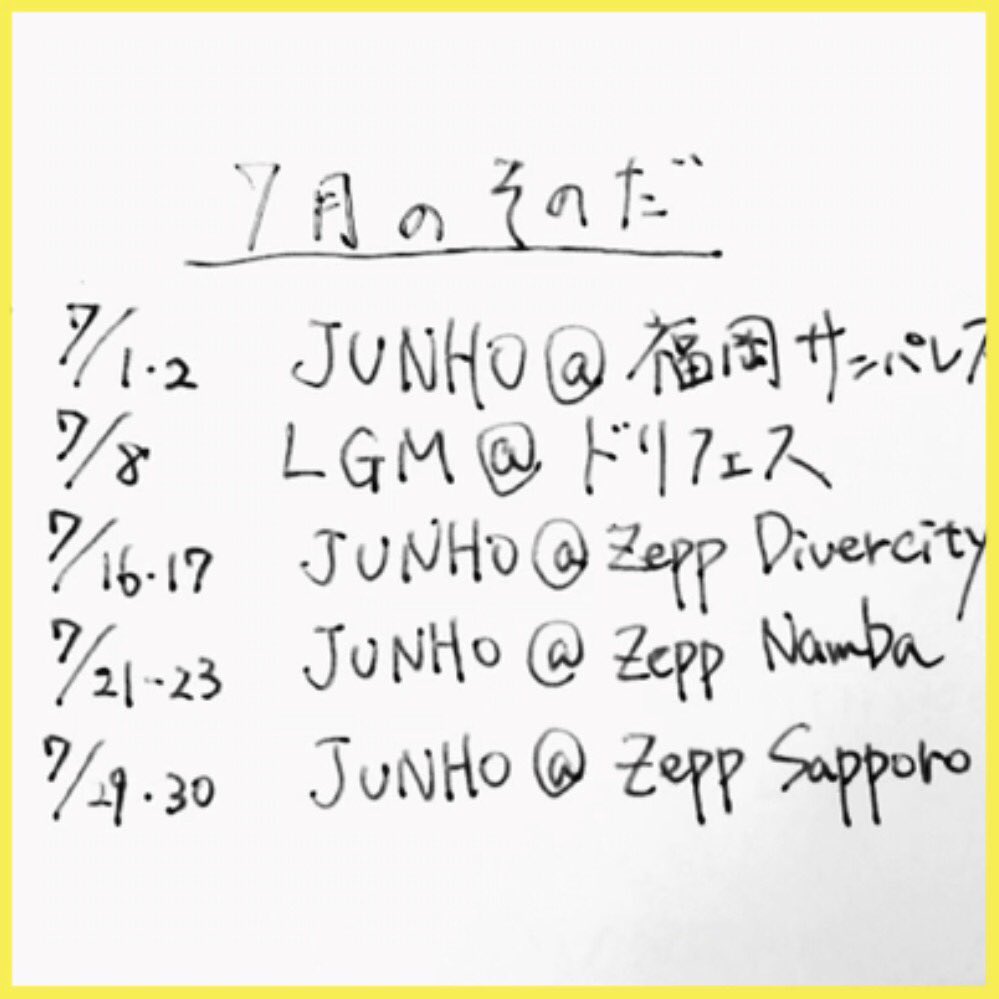 7月のそのだ
7/1・2 JUNHO@福岡サンパレス
7/8 LGM@ドリフェス
7/16・17 JUNHO@Zepp Divercity
7/21-23 JUNHO@Zepp Namba
7/29・30 JUNHO@Zepp Sapporo